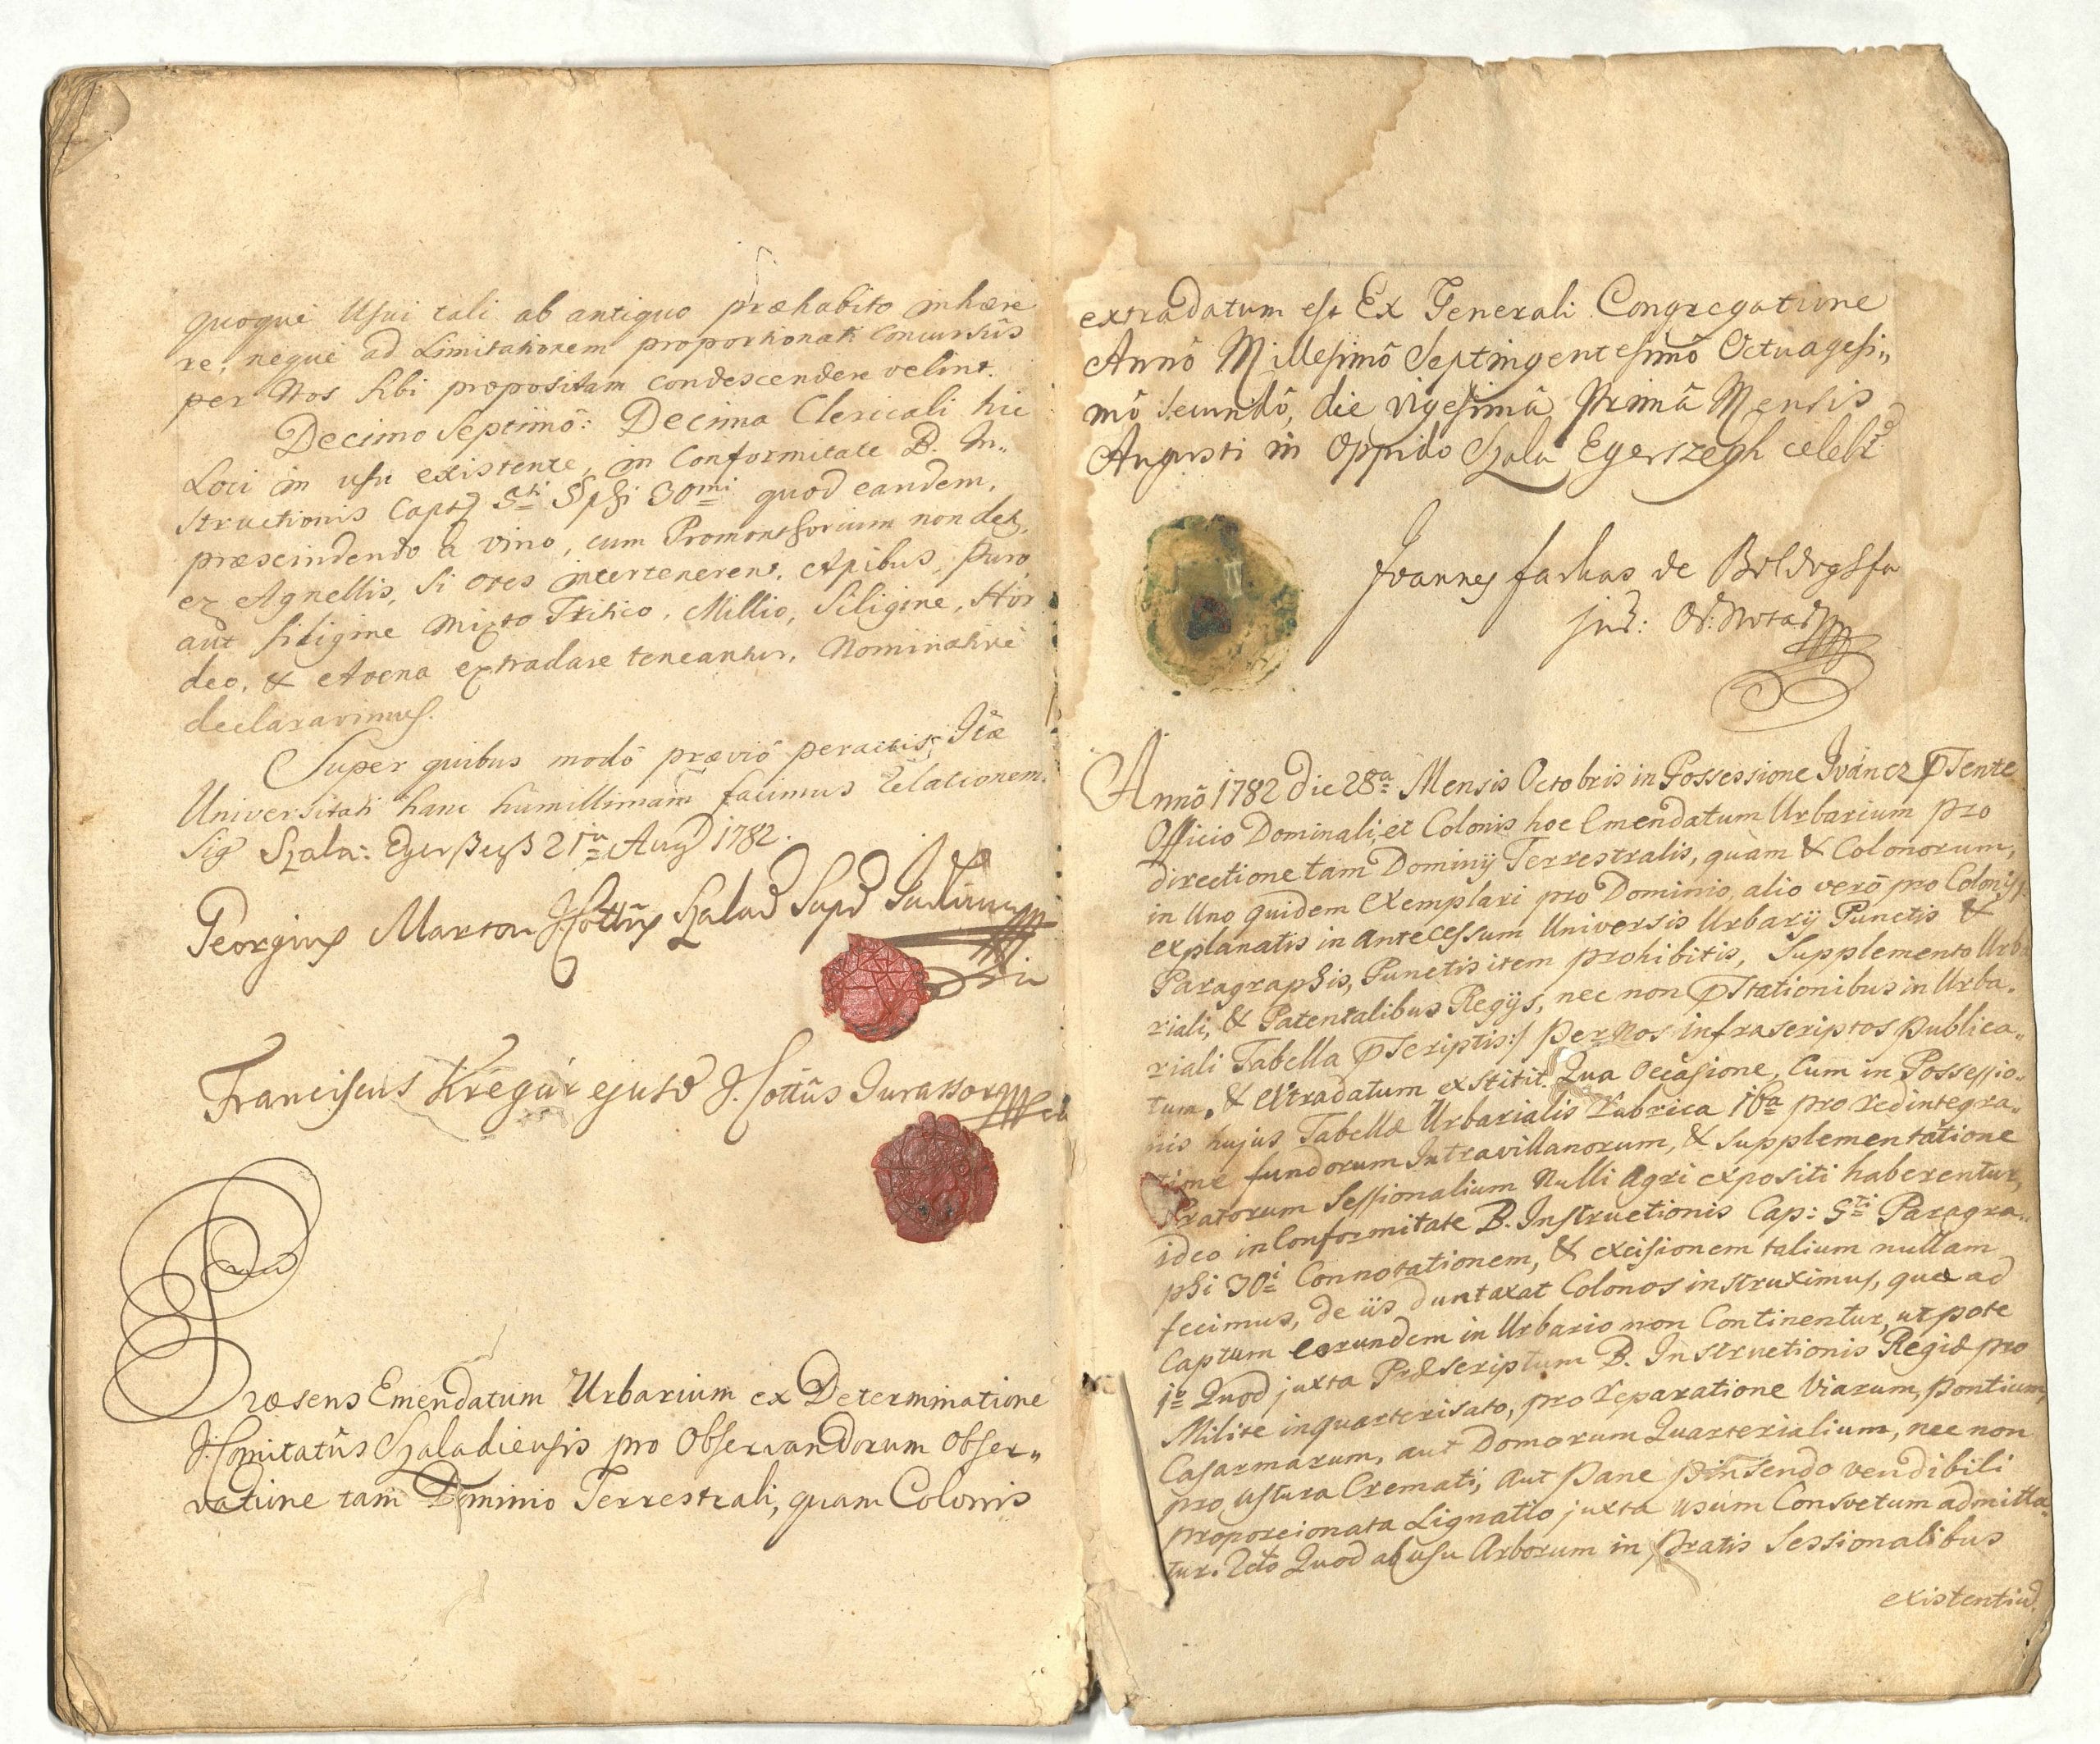 quoque Usui tali ab antiquo præhabito inhære
re, neque ad Limitationem proportionati Concursûs
per Nos sibi propositam condescendere velint.
Decimo Septimô: Decima Clericali hic
Loci in usu existente, in Conformitate B. In„
structionis Capt 5ti §phi 30mi quod eandem,
præscindendo à vino, cum Promonthorium non det,
ex Agnellis, si oves intertenerent, Apibus, puro
aut siligine mixto Tritico, Millio, Siligine, Hor
deo, & Avena extradare teneantur, Nominativè
declaravimus.
Super quibus modô præviô peractis, Itæ
Universitati hanc humillimam facimus Relationem.
Sig Szala: Egerszegh 21a Aug 1782.
Georgius Marton I. Cottûs Szalad Sup Judlium
Franciscus Kregár ejusd I. Cottûs Jurassor
Præsens Emendatum Urbarium ex Determinatione
I. Comitatûs Szaladiensis pro Observandorum Obser„
vatione tam Dominio Terrestrali, quam Colonis
extradatum est Ex Generali Congregatione
Annô Millesimô Septingentesimô Octuagesi„
mô Secundô, die vigesimâ Primâ Mensis
Augusti in Oppido Szala Egerszegh celebr
Joannes farkas de Boldogffa
jur: Or: Notar
Annô 1782 die 28a Mensis Octobris in Possessione Iváncz pTente
Officio Dominali, et Colonis hoc Emendatum Urbarium pro
directione tam Dominij Terrestralis, quàm & Colonorum,
in Uno quidem Exemplari pro Dominio, alio verô pro Colonis
explanatis in antecessum Universis Urbarij Punctis &
Paragraphis, Punctis item prohibitis, Supplemento Urba
riali, & Patentalibus Regijs, nec non pTtationibus in Urba„
riali Tabella pTscriptis:/ per Nos infrascriptos publica„
tum, & extradatum exstitit. Qua Occasione, Cum in Possessio„
nis hujus Tabellæ Urbarialis Rubrica 16a pro redintegra„
tione fundorum Intravillanorum, & supplementatione
Pratorum Sessionalium Nulli Agri expositi haberentur,
ideo in Conformitate B. Instructionis Cap: 5ti Paragra„
phi 30i Connotationem, & excisionem talium nullam
fecimus, de iis duntaxat Colonos instruximus, quæ ad
Captum eorundem in Urbario non Continentur, utpote
1o Quod juxta Præscriptum B. Instructionis Regiæ pro
Milite inquarterisato, pro reparatione Viarum, pontium,
Casarmarum, aut Domorum Quarterialium, nec non
pro ustura Cremati, aut Pane pinsendo vendibili
proporcionata Lignatio juxta usum Consvetum admitta„
tur. 2do Quod ab usu Arborum in pratis Sessionalibus
existentiu